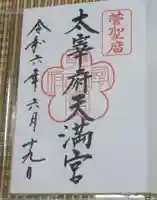 菅聖廟
太宰府天満宮
令和六年六月十九日